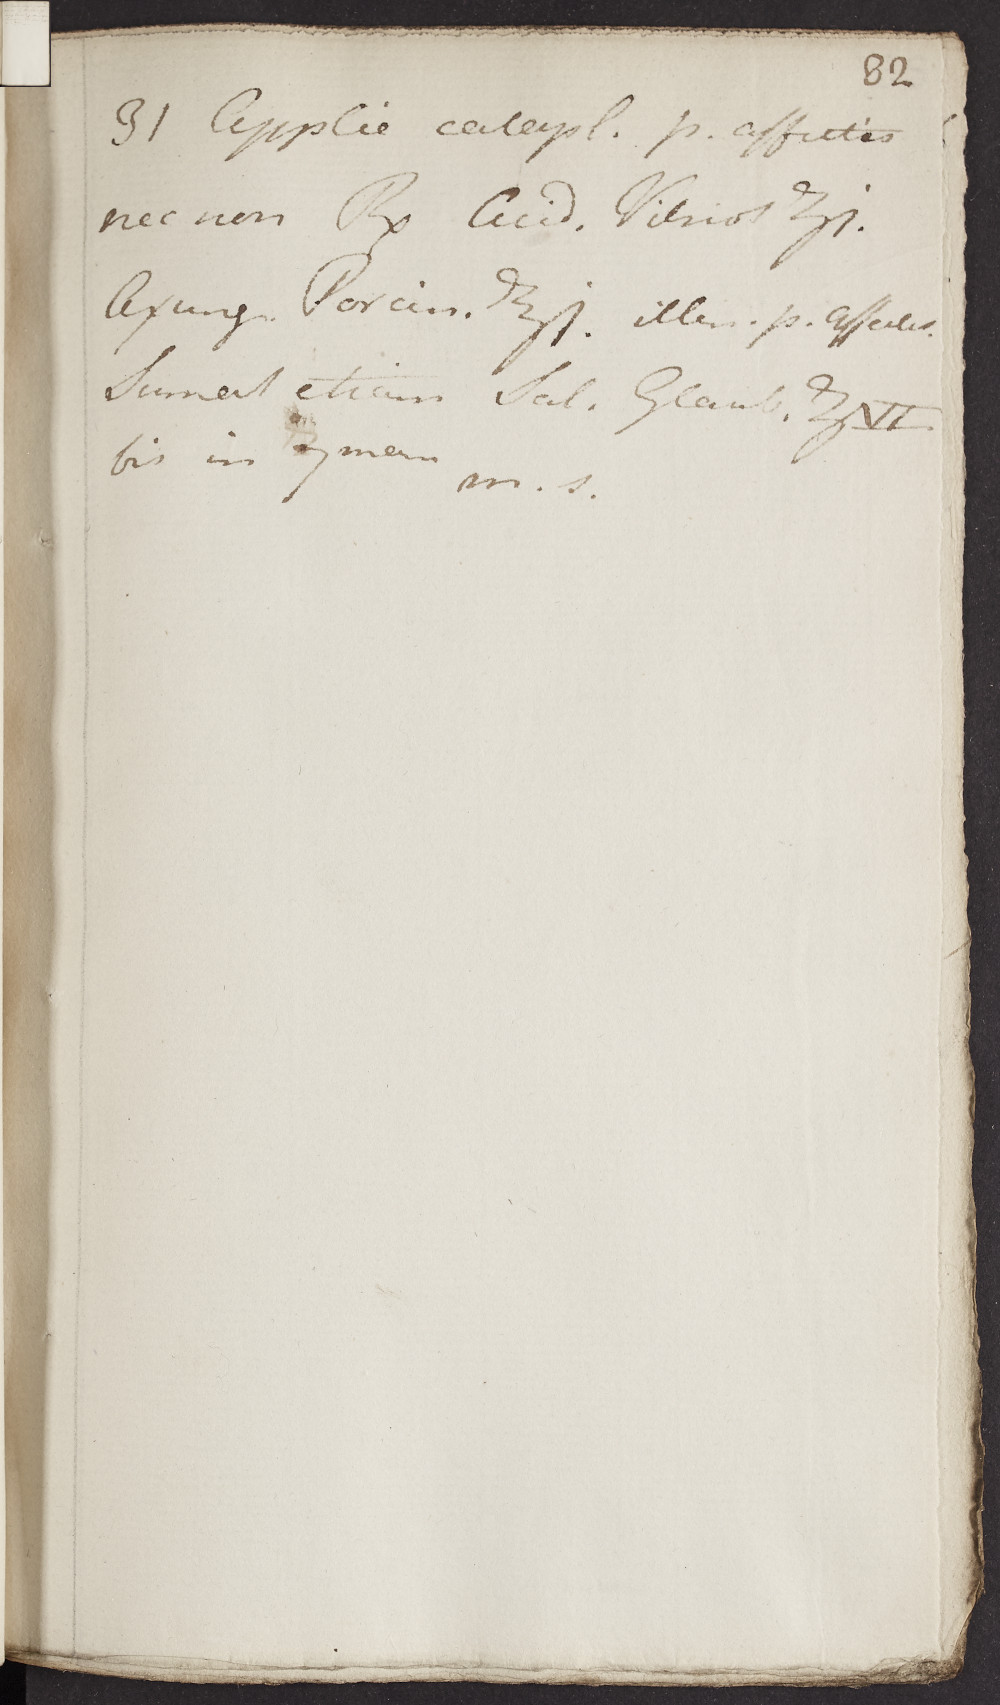 82
31 Applic catapl. p. affectis
nec non Rx Acid. Vitriol ʒj.
Axung. Porcin. ℥j. illin. p. affectis.
Sumat etiam Sal. Glaub. ʒVI
bis in
m. s.